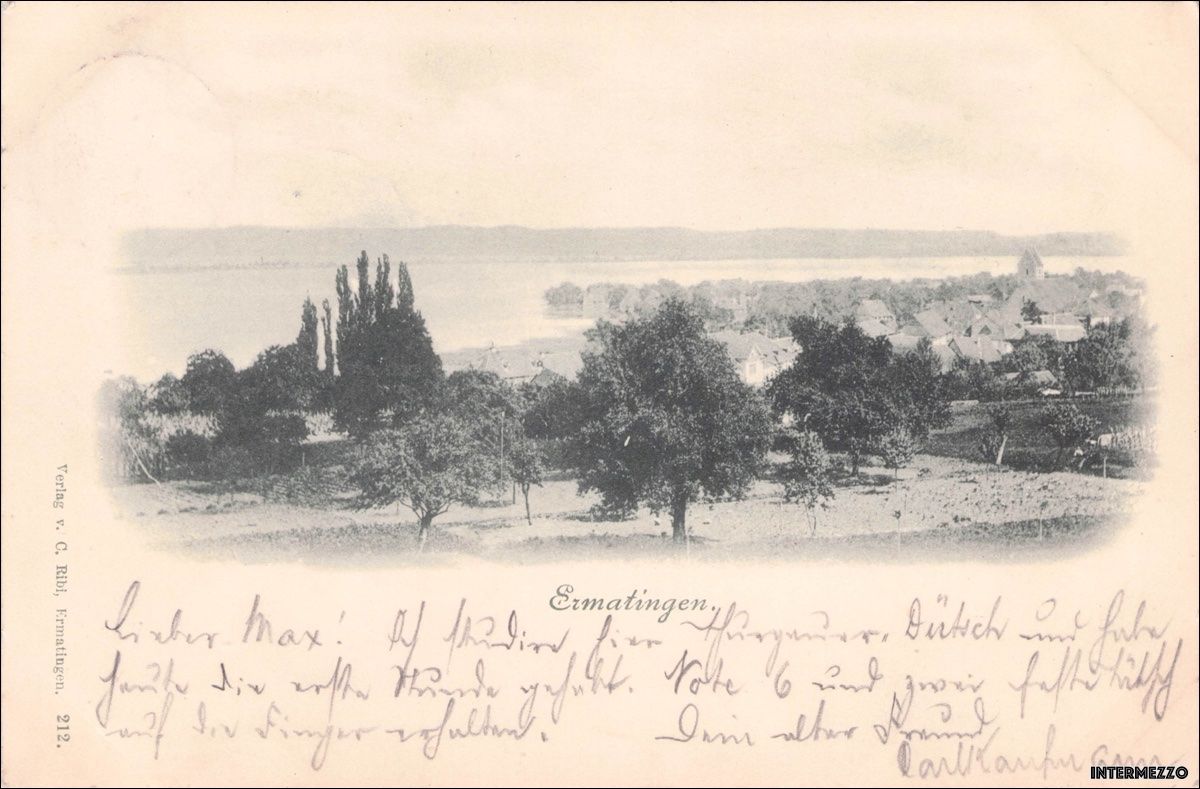 Ermatingen.
Lieber Max! Ich studire hier Thurgauer-Dütsch und habe
heute die erste Stunde gehabt. Note 6 und zwei feste tätsch
auf die Finger erhalten. Dein alter Freund
Carl Kaufmann
Verlag v. C. Ribi, Ermatingen. 212.
INTERMEZZO